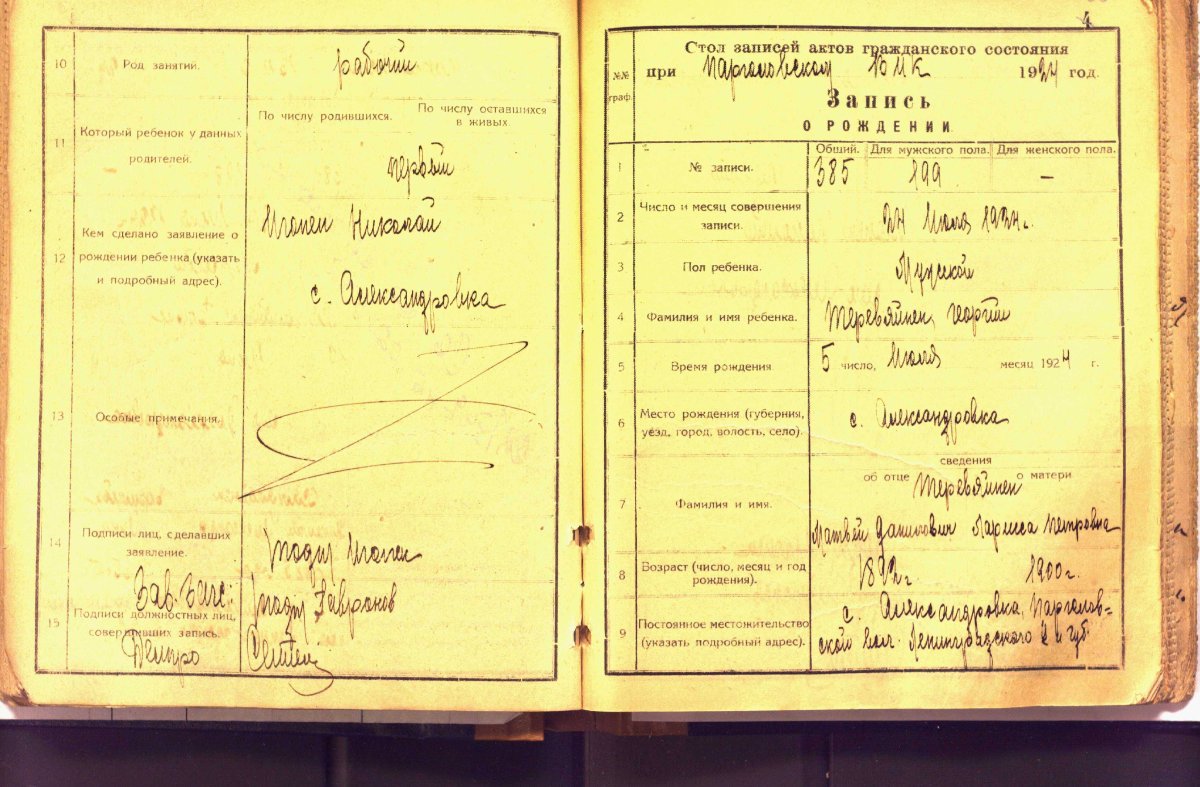 10
Род занятий.
рабочий
11
Который ребенок у данных
родителей.
По числу родившихся.
По числу оставшихся
в живых.
первый
12
Кем сделано заявление о
рождении ребенка (указать
и подробный адрес).
Игонен Николай
с. Александровка
13
Особые примечания.
14
Подписи лиц, сделавших
заявление.
подп Игонен
15
Зав. Загс:
Подписи должностных лиц,
совершивших запись.
подп Гавронов
4
№№
граф.
Стол записей актов гражданского состояния
при Парголовском ВИК 1924 год.
Запись
О РОЖДЕНИИ.
Общий. Для мужского пола. Для женского пола.
1
№ записи.
385 199 —
2
Число и месяц совершения
записи.
24 Июля 1924 г.
3
Пол ребенка.
Мужской
4
Фамилия и имя ребенка.
Теревяйнен, Георгий
5
Время рождения
5 число, Июля месяц 1924 г.
6
Место рождения (губерния,
уезд, город, волость, село).
с. Александровка
сведения
об отце о матери
7
Фамилия и имя.
Теревяйнен
Матвей Данилович Лариса Петровна
8
Возраст (число, месяц и год
рождения).
1892 г. 1900 г.
9
Постоянное местожительство
(указать подробный адрес).
с. Александровка, Парголов-
ской вол. Ленинградского у и губ.